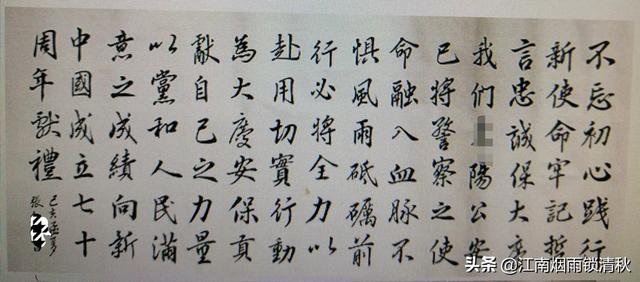 不忘初心践行
新使命牢记誓
言忠誠保大慶
我们陽公安
已将警察之使
命融入血脉不
惧風雨砥礪前
行必将全力以
赴用切實行動
為大慶安保貢
獻自己之力量
以黨和人民滿
意之成績向新
中國成立七十
周年献禮
己亥
張
头条 @江南烟雨锁清秋